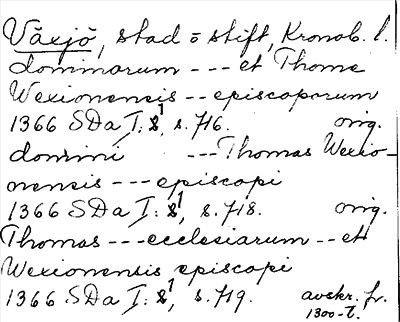 Växjö, stad o stift, Kronob. l.
dominorum --- et Thome
Wexionensis -- episcoporum
1366 SDa I: 1, s. 716. orig.
domini --- Thomas Wexio-
nensis --- episcopi
1366 SDa I: 1, s. 718. orig.
Thomas --- ecclesiarum -- et
Wexionensis episcopi
1366 SDa I: 1, s. 719. avskr. fr.
1300-t.